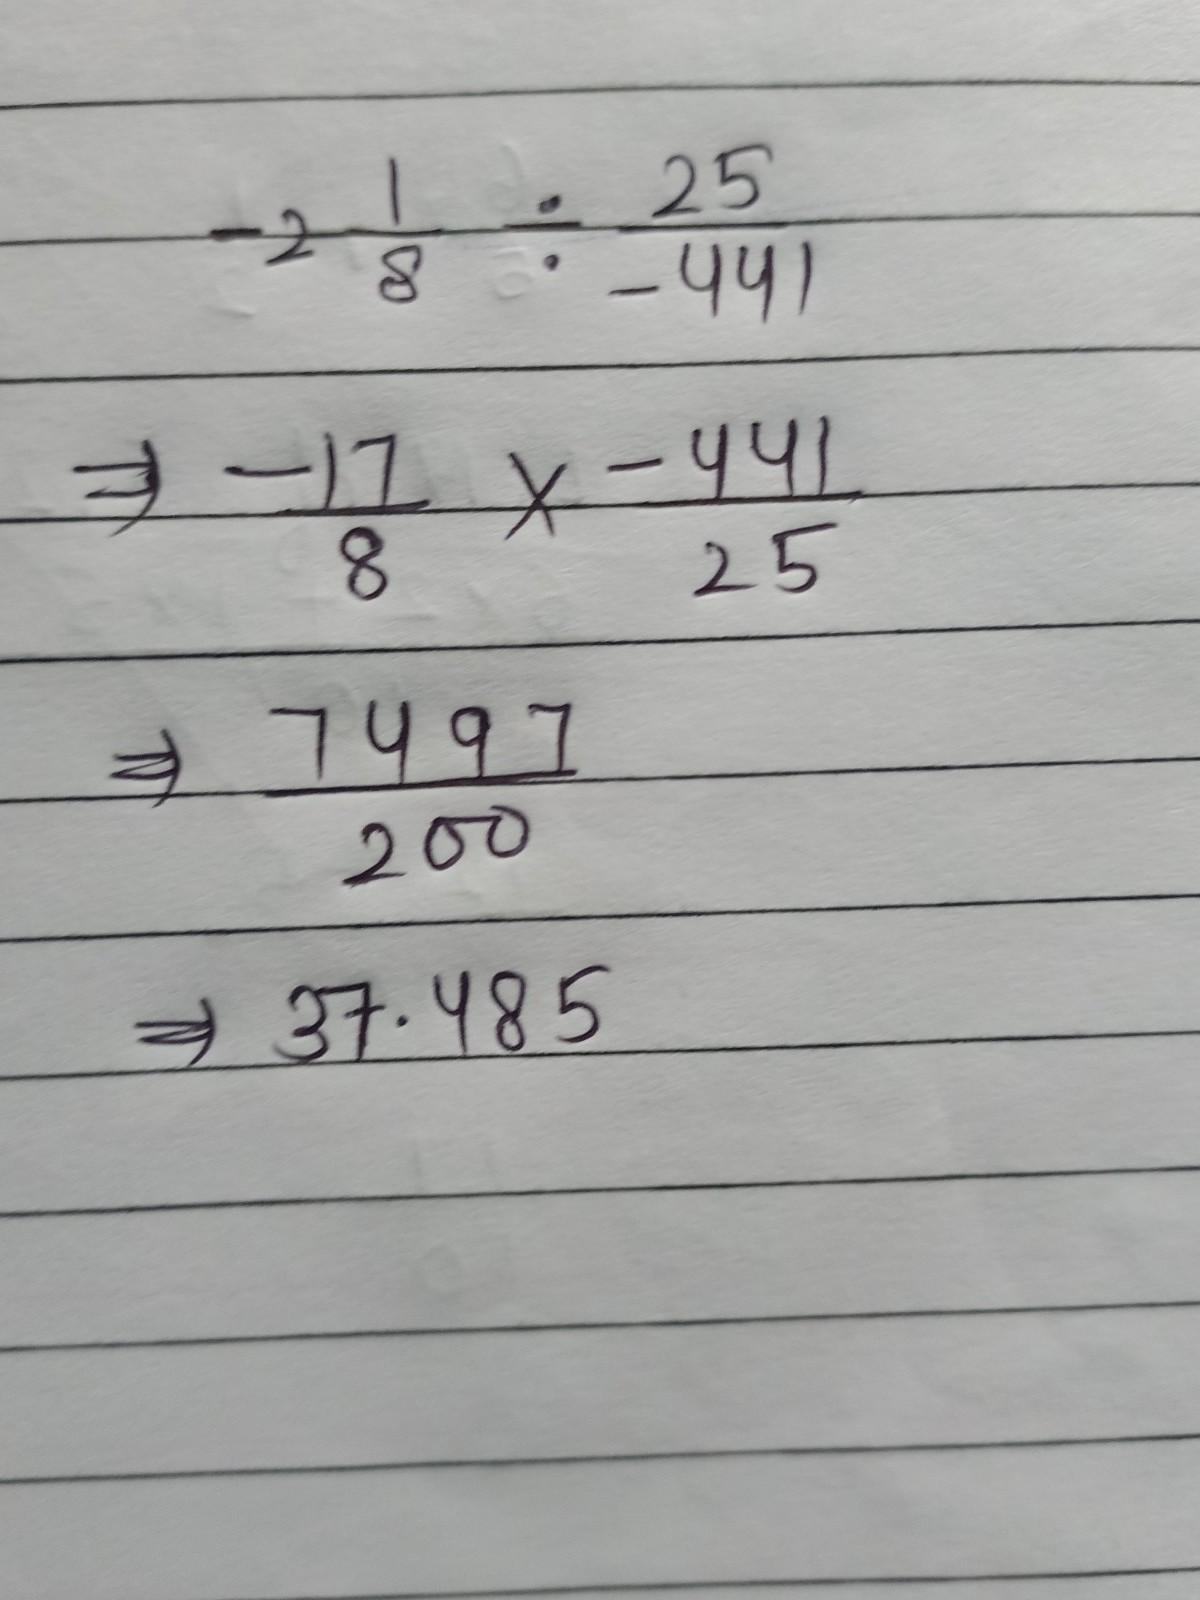 -2 1/8 ÷ 25/-441
⇒ -17/8 × -441/25
⇒ 7497/200
⇒ 37.485